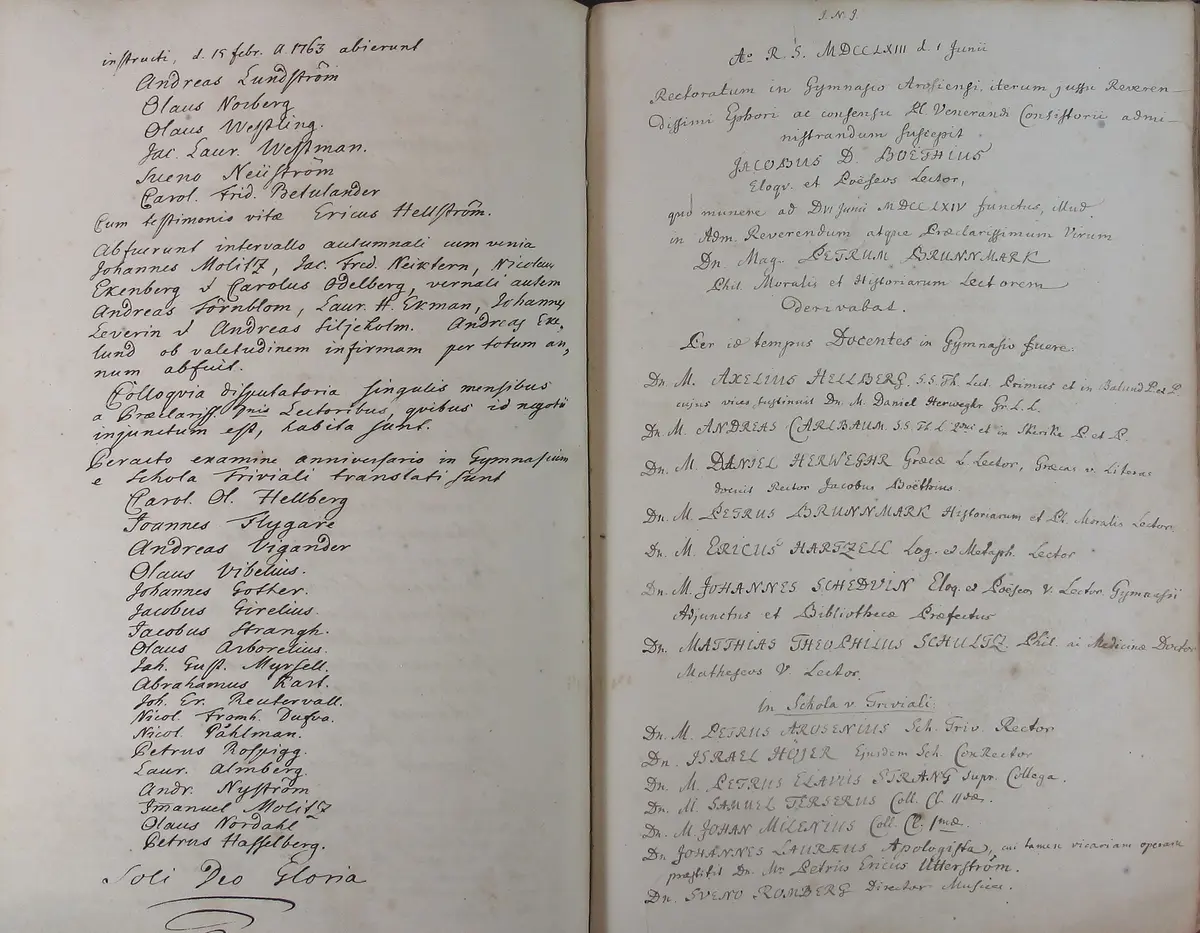 instructi, d. 15 febr. A 1763 abierunt
Andreas Lundström
Olaus Norberg
Olaus Westling.
Jac. Laur. Westman.
Sueno Neüström
Carol. Frid. Betulander
Cum testimonio vitæ Ericus Hellström.
Abfuerunt intervallo autumnali cum venia
Johannes Molitz, Jac. Fred. Neiktern, Nicolaus
Ekenberg & Carolus Odelberg, vernali autem
Andreas Törnblom, Laur. H. Ekman, Johannes
Leverin & Andreas Siljeholm. Andreas Eke,
lund ob valetudinem infirmam per totum an,
num abfuit.
Colloqvia disputatoria singulis mensibus
a Præclariss. Dnis Lectoribus, qvibus id negotii
injunctum est, habita sunt.
Peracto examine anniversario in Gymnasium
e Schola Triviali translati sunt
Carol. Ol. Hellberg
Joannes Flygare
Andreas Vigander
Olaus Vibelius.
Johannes Gother.
Jacobus Girelius.
Jacobus Strangh.
Olaus Arborelius.
Joh. Gust. Myrsell.
Abrahamus Kart.
Joh. Er. Reutervall.
Nicol. Fromh. Dufva.
Nicol. Påhlman.
Petrus Rospigg.
Laur. Almberg.
Andr. Nyström
Imanuel Molitz
Olaus Nordahl
Petrus Hasselberg.
Soli Deo Gloria
I. N. J.
Ao R. S. MDCCLXIII d. 1 Junii
Rectoratum in Gymnasio Arosiensi iterum jussu Reveren-
dissimi Ephori ac consensu Pl. Venerandi Consistorii admi-
nistrandum suscepit
JACOBUS D. BOËTHIUS
Eloqv. et Poëseos Lector,
quo munere ad D VI Junii MDCCLXIV functus, illud
in Adm. Reverendum atque Præclarissimum Virum
Dn Mag. PETRUM BRUNNMARK
Phil. Moralis et Historiarum Lectorem
Derivabat.
Per id tempus Docentes in Gymnasio fuere:
Dn. M. AXELIUS HELLBERG. S.S. Th. Lect. Primus et in Balund P. et P.
cujus vices sustinuit Dn. M. Daniel Herweghr Gr. L. L.
Dn. M. ANDREAS CARLBAUM. S.S. Th. L. 2dus et in Skerike P. et P.
Dn. M. DANIEL HERWEGHR Græcæ L. Lector, Græcas v. Literas
docuit Rector Jacobus Boëthius.
Dn. M. PETRUS BRUNNMARK Historiarum et Ph. Moralis Lector.
Dn. M. ERICUS HARTZELL Log. et Metaph. Lector
Dn. M. JOHANNES SCHEDVIN Eloq. et Poëseos V. Lector. Gymnasii
Adjunctus et Bibliothecæ Præfectus
Dn. MATTHIAS THEOPHILUS SCHULTZ. Phil. ac Medicinæ Doctor
Matheseos V. Lector.
In Schola v. Triviali:
Dn. M. PETRUS AROSENIUS Sch. Triv. Rector
Dn. ISRAEL HÖJER Ejusdem Sch. ConRector
Dn. M. PETRUS ELAVUS STRANG Supr. Collega.
Dn. M. SAMUEL TERSERUS Coll. Cl. IIdæ.
Dn. M. JOHAN MILENIUS Coll. Cl. Imæ.
Dn. JOHANNES LAURÆUS Apologista, cui tamen vicariam operam
præstitit Dn. Mr. Petrus Ericus Utterström.
Dn. SVENO ROMBERG Director Musices.